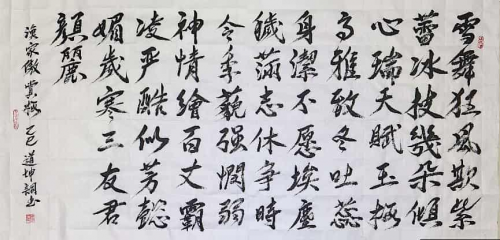 雪舞狂風欺紫
萼冰枝幾朵傾
心瑞天賦玉梅
高雅致冬吐蕊
身潔不愿埃塵
穢滿志休争時
令季藐强憫弱
神情繪百丈霸
凌严酷似芳懿
媚歲寒三友君
顔麗
漁家傲 紫梅 乙巳 道坤詞书